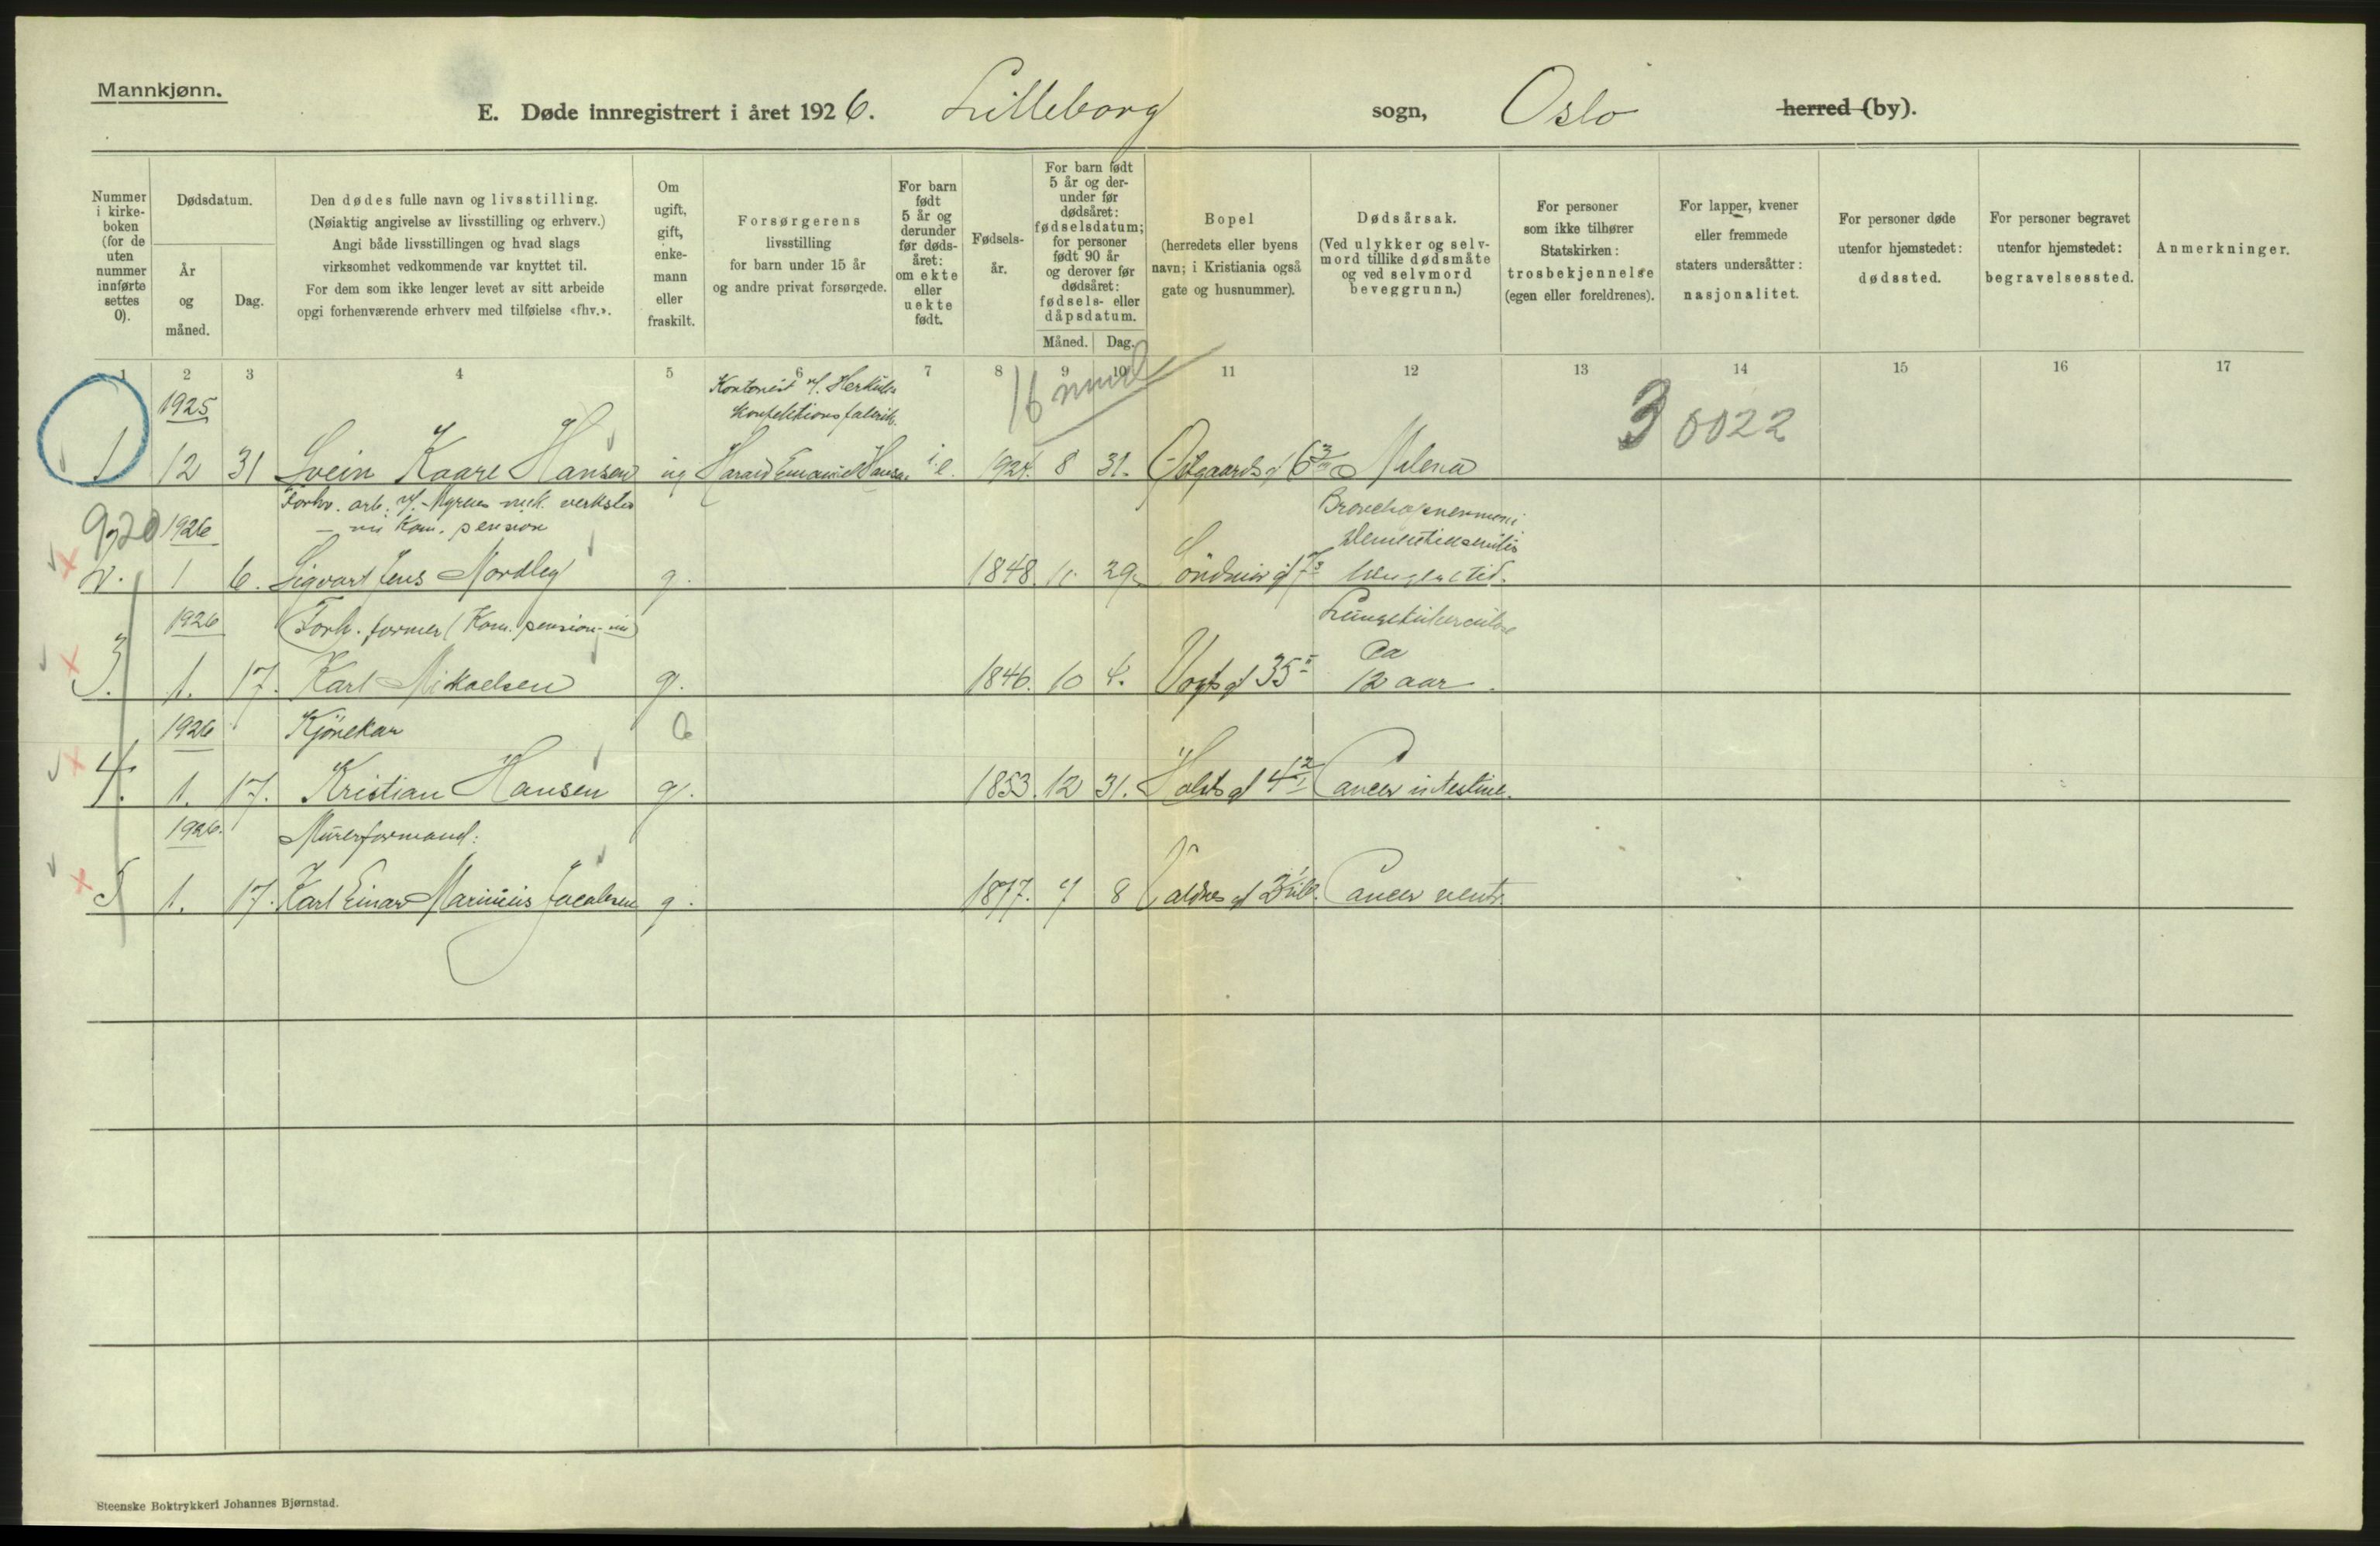 Mannkjønn.
E. Døde innregistrert i året 1926. Lilleborg sogn, Oslo herred (by).
Nummer i kirke-boken (for de uten nummer innførte settes 0).
Dødsdatum.
År og måned.
Dag.
Den dødes fulle navn og livsstilling.
(Nøiaktig angivelse av livsstilling og erhverv.)
Angi både livsstillingen og hvad slags
virksomhet vedkommende var knyttet til.
For dem som ikke lenger levet av sitt arbeide
opgi forhenværende erhverv med tilføielse «fhv.».
Om ugift, gift, enke-mann eller fraskilt.
Forsørgerens
livsstilling
for barn under 15 år
og andre privat forsørgede.
For barn født 5 år og derunder før døds-året: om ekte eller uekte født.
Fødsels-år.
For barn født 5 år og der-under før dødsåret: fødselsdatum; for personer født 90 år og derover før dødsåret: fødsels- eller dåpsdatum.
Måned. Dag.
Bopel
(herredets eller byens
navn; i Kristiania også
gate og husnummer).
Dødsårsak.
(Ved ulykker og selv-
mord tillike dødsmåte
og ved selvmord
beveggrunn.)
For personer
som ikke tilhører
Statskirken:
trosbekjennelse
(egen eller foreldrenes).
For lapper, kvener
eller fremmede
staters undersåtter:
nasjonalitet.
For personer døde
utenfor hjemstedet:
dødssted.
For personer begravet
utenfor hjemstedet:
begravelsessted.
Anmerkninger.
1 2 3 4 5 6 7 8 9 10 11 12 13 14 15 16 17
1925 Kontorist v/. Herkules
Konfektionsfabrik. 16 30022
1 12 31 Svein Kaare Hansen ug Harald Emanuel Hansen i.e. 1924. 8 31. Østgaards g 6 Melena
Forhv. arb. v/. Myrens mek. verksted
920 1926 - nu Kom. pension Bronchopnermoni
2. 1 6. Sigvart Jens Nordley g. 1848. 11. 29.
1926 (Forh. former (Kom. pension nu) Lungetuberculose
3. 1. 17. Karl Mikaelsen g. 1846. 10 4. Vogts g 35 Ca 12 aar.
1926 Kjørekar 6
4. 1. 17. Kristian Hansen g. 1853. 12 31. Holsts g 4 Cancer intestine.
1926. Murerformand.
5 1. 17. Karl Einar Marinius Jacobsen g. 1877. 7 8 Valdres g Cancer ventr.
Steenske Boktrykkeri Johannes Bjørnstad.